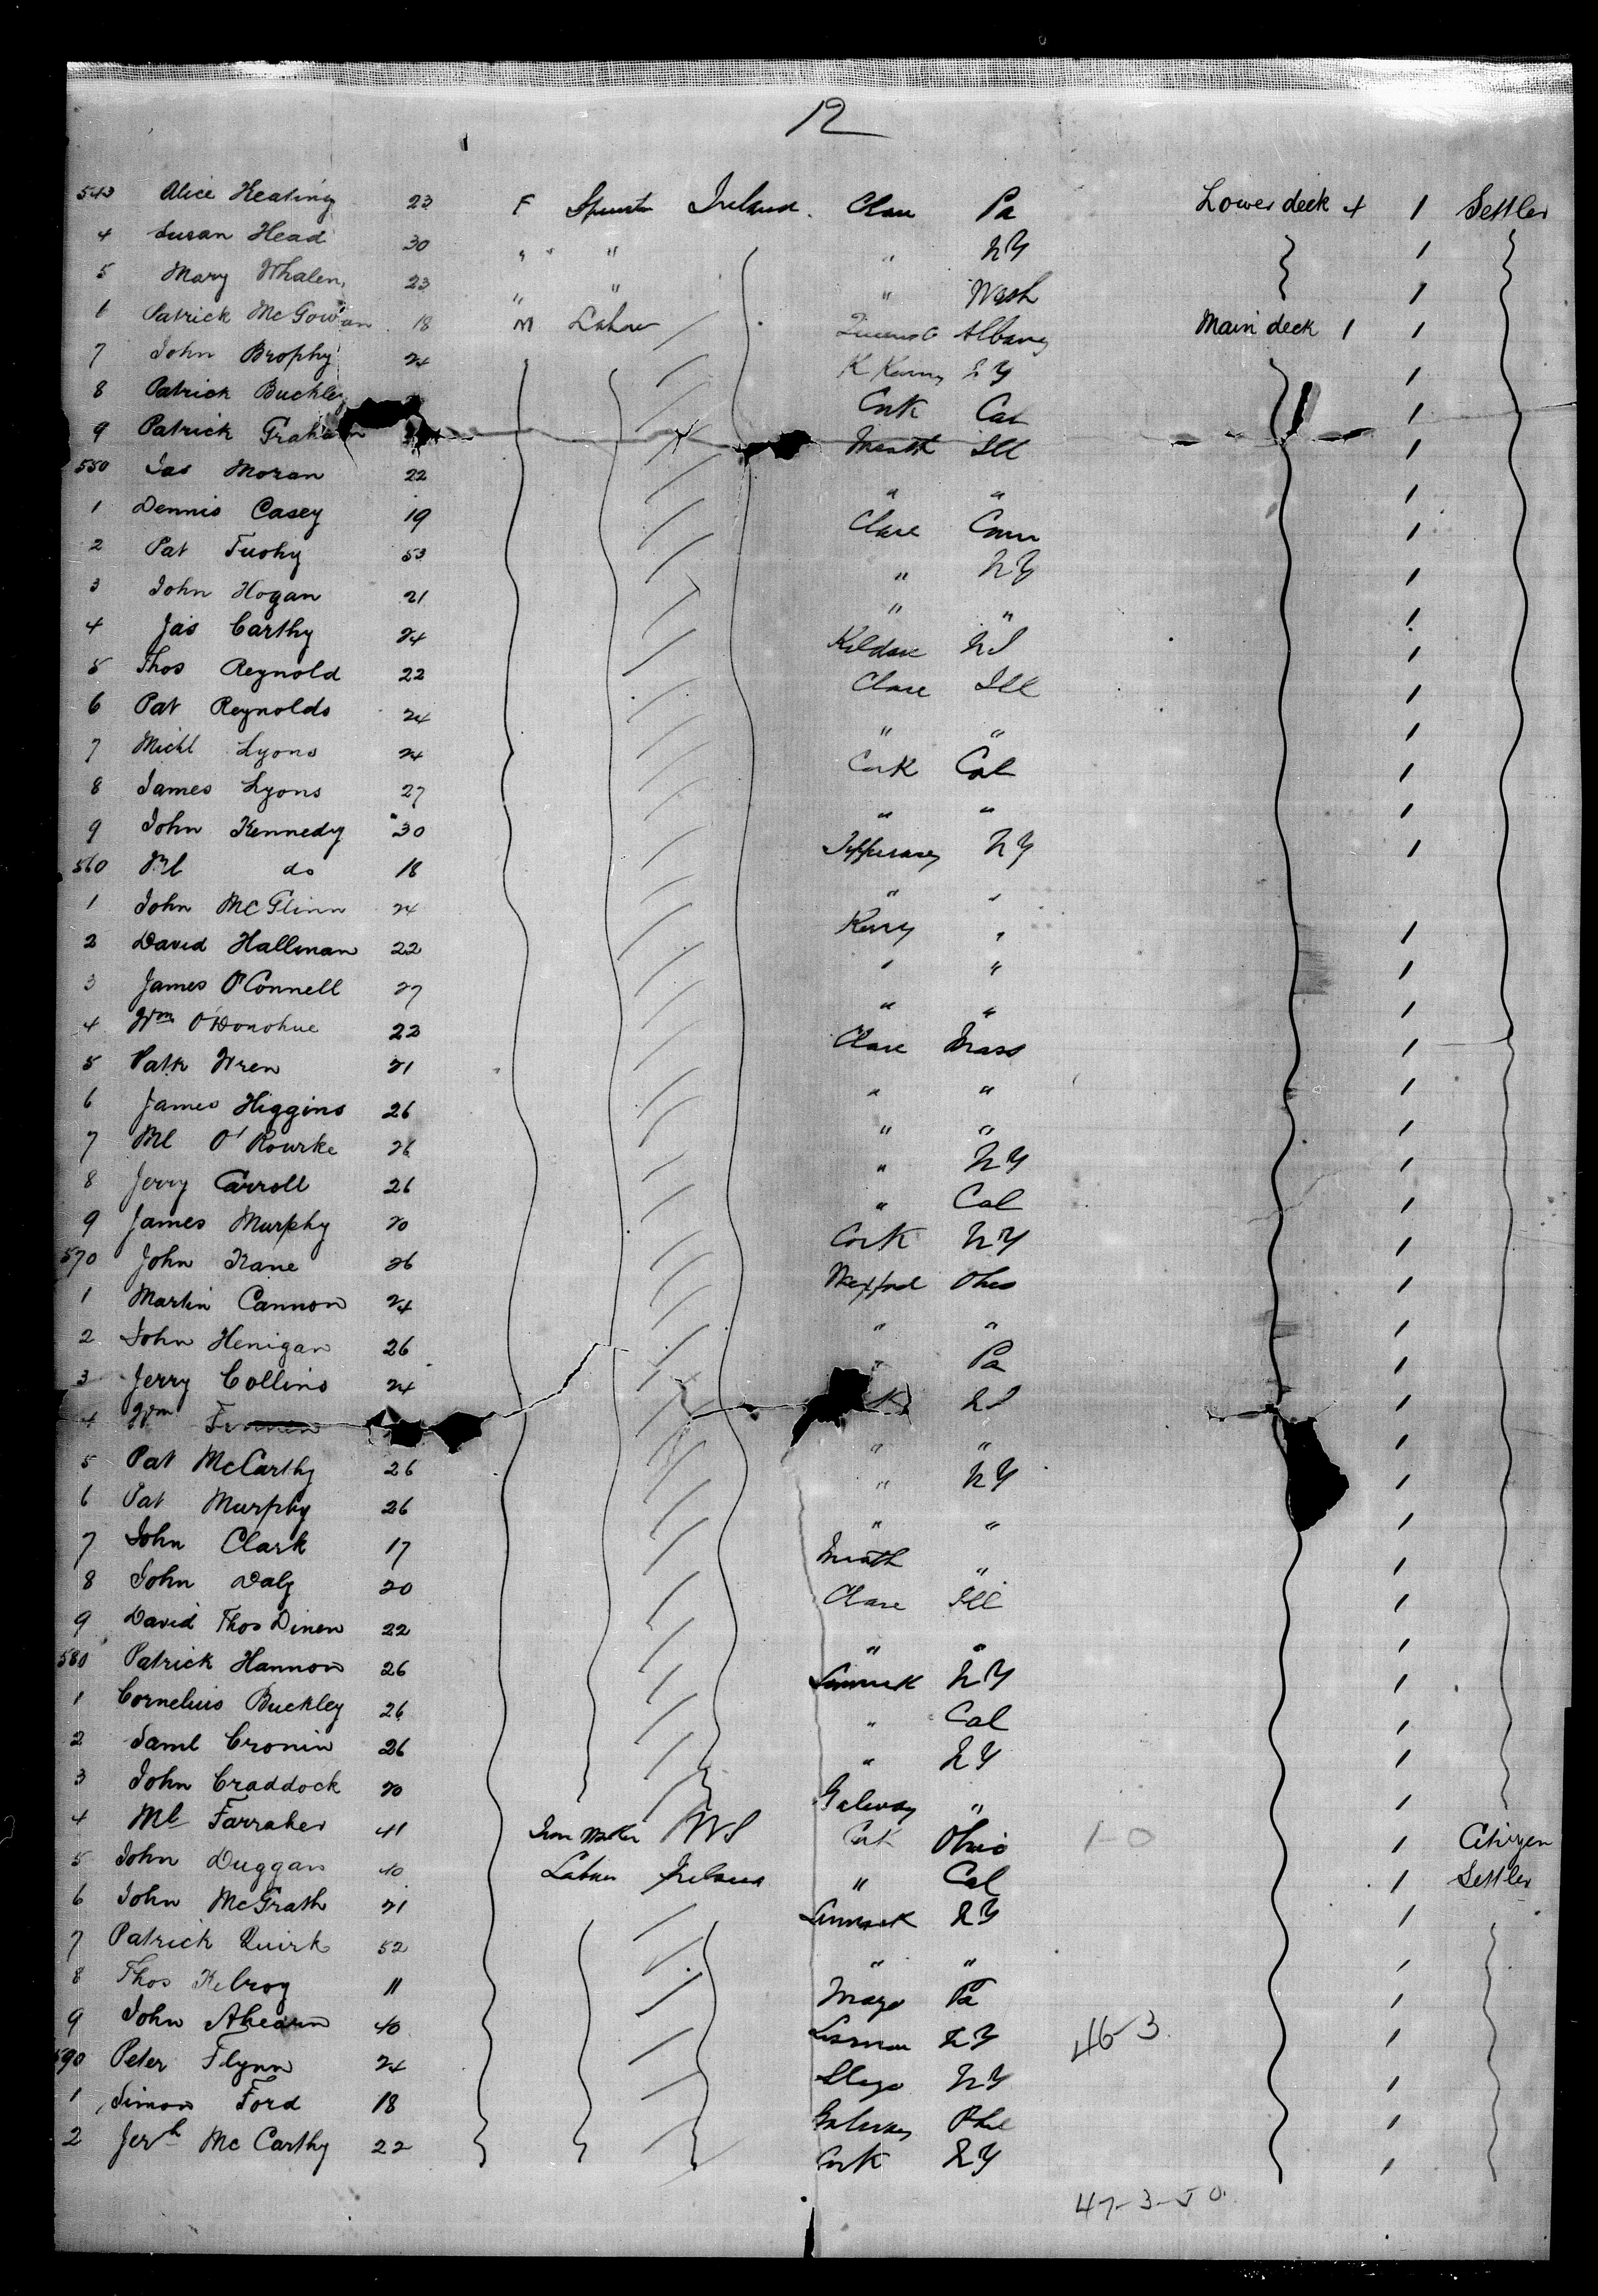 12
543 Alice Keating 23 F Spinster Ireland. Clare Pa Lower deck 4 1 Settler
4 Susan Head 30 " " " NY 1
5 Mary Whalen 23 " " " Wash 1
6 Patrick McGowan 18 M Labour Queens C Albany Main deck 1 1
7 John Brophy 24 K Kenny NY 1
8 Patrick Buckley Cork Cal 1
9 Patrick Graham Meath Ill 1
550 Jas Moran 22 " " 1
1 Dennis Casey 19 Clare Conn 1
2 Pat Tuohy 53 " NY 1
3 John Hogan 21 " " 1
4 Jas Carthy 24 Kildare NJ 1
5 Thos Reynold 22 Clare Ill 1
6 Pat Reynolds 24 " " 1
7 Michl Lyons 24 Cork Cal 1
8 James Lyons 27 " " 1
9 John Kennedy 30 Tipperary NY 1
560 Ml do 18 " "
1 John McGlinn 24 Kerry " 1
2 David Hallinan 22 " " 1
3 James O'Connell 27 " " 1
4 Wm O'Donohue 22 Clare Mass 1
5 Patk Wren 21 " " 1
6 James Higgins 26 " " 1
7 Ml O'Rourke 26 " NY 1
8 Jerry Carroll 26 " Cal 1
9 James Murphy 20 Cork NY 1
570 John Kane 26 Wexford Ohio 1
1 Martin Cannon 24 " " 1
2 John Henigan 26 " Pa 1
3 Jerry Collins 24 k NJ 1
4 Wm " " 1
5 Pat McCarthy 26 " NY 1
6 Pat Murphy 26 " " 1
7 John Clark 17 Meath " 1
8 John Daly 20 Clare Ill 1
9 David Thos Dinen 22 " " 1
580 Patrick Hannon 26 Limerick NY 1
1 Cornelius Buckley 26 " Cal 1
2 Saml Cronin 26 " NY 1
3 John Craddock 20 Galway " 1
4 Ml Farraher 41 Iron Worker US Cork Ohio 1-0 1 Citizen
5 John Duggan 40 Labour Ireland " Cal 1 Settler
6 John McGrath 21 Limerick NY 1
7 Patrick Quirk 52 " " 1
8 Thos Kilroy 11 Mayo Pa 1
9 John Ahearn 40 NY 46-3 1
590 Peter Flynn 24 Sligo NY 1
1 Simon Ford 18 Galway Phil 1
2 Jerh McCarthy 22 Cork NY 1
47-3-50